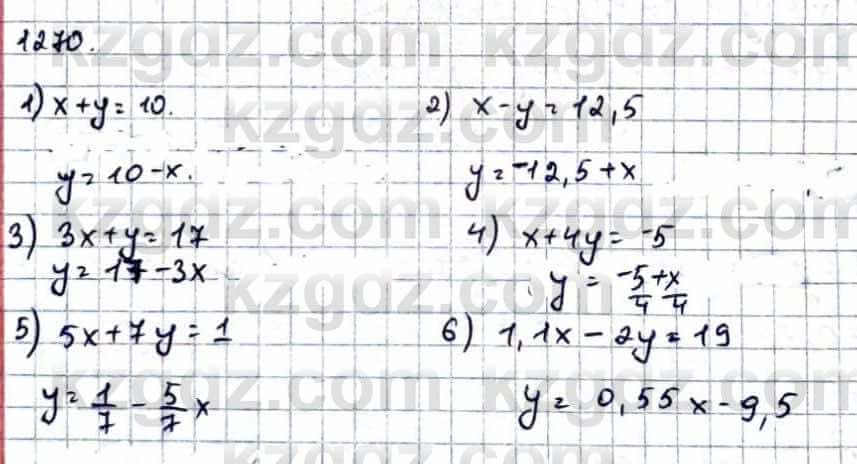 1270.
1) x+y=10.
y=10-x.
2) x-y=12,5
y=-12,5+x
3) 3x+y=17
y=17-3x
4) x+4y=-5
y=-5/4+x/4
5) 5x+7y=1
y=1/7-5/7x
6) 1,1x-2y=19
y=0,55x-9,5
kzgdz.com